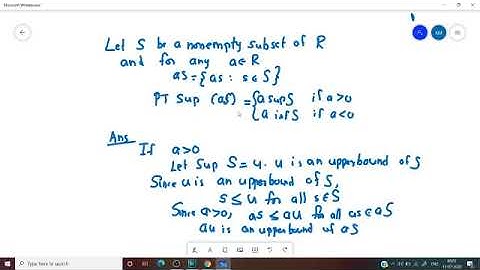 Microsoft Whiteboard
Let S be a nonempty subset of R
and for any a∈R
aS = {as : s∈S}
PT Sup (aS) = { a supS if a>0
{ a infS if a<0
Ans
If a>0
Let Sup S = u. u is an upperbound of S
Since u is an upperbound of S,
s ≤ u for all s∈S
Since a>0, as ≤ au for all as∈aS
au is an upperbound of aS
Type here to search
ENG